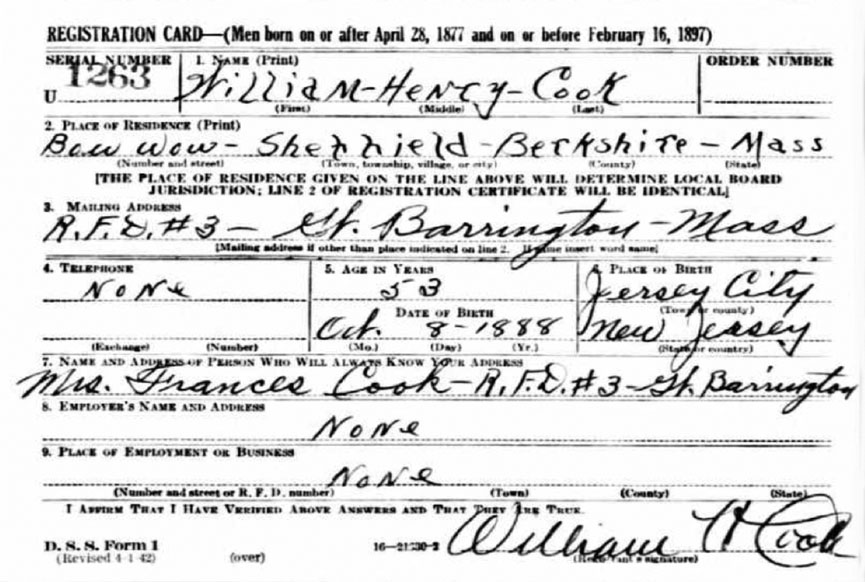 REGISTRATION CARD—(Men born on or after April 28, 1877 and on or before February 16, 1897)
SERIAL NUMBER 1. NAME (Print) ORDER NUMBER
U 1263 William-Henry-Cook
(First) (Middle) (Last)
2. PLACE OF RESIDENCE (Print)
Bow Wow- Sheffield-Berkshire-Mass
(Number and street) (Town, township, village, or city) (County) (State)
[THE PLACE OF RESIDENCE GIVEN ON THE LINE ABOVE WILL DETERMINE LOCAL BOARD
JURISDICTION; LINE 2 OF REGISTRATION CERTIFICATE WILL BE IDENTICAL]
3. MAILING ADDRESS
R.F.D.#3- Gt. Barrington-Mass
[Mailing address if other than place indicated on line 2. If same insert word same]
4. TELEPHONE 5. AGE IN YEARS 6. PLACE OF BIRTH
None 53 Jersey City
DATE OF BIRTH (Town or county)
Oct. 8-1888 New Jersey
(Exchange) (Number) (Mo.) (Day) (Yr.) (State or country)
7. NAME AND ADDRESS OF PERSON WHO WILL ALWAYS KNOW YOUR ADDRESS
Mrs. Frances Cook-R.F.D.#3-Gt. Barrington
8. EMPLOYER'S NAME AND ADDRESS
None
9. PLACE OF EMPLOYMENT OR BUSINESS
None
(Number and street or R. F. D. number) (Town) (County) (State)
I AFFIRM THAT I HAVE VERIFIED ABOVE ANSWERS AND THAT THEY ARE TRUE.
William H Cook
D. S. S. Form 1
(Revised 4-1-42) (over) 16-21630-2 (Registrant's signature)